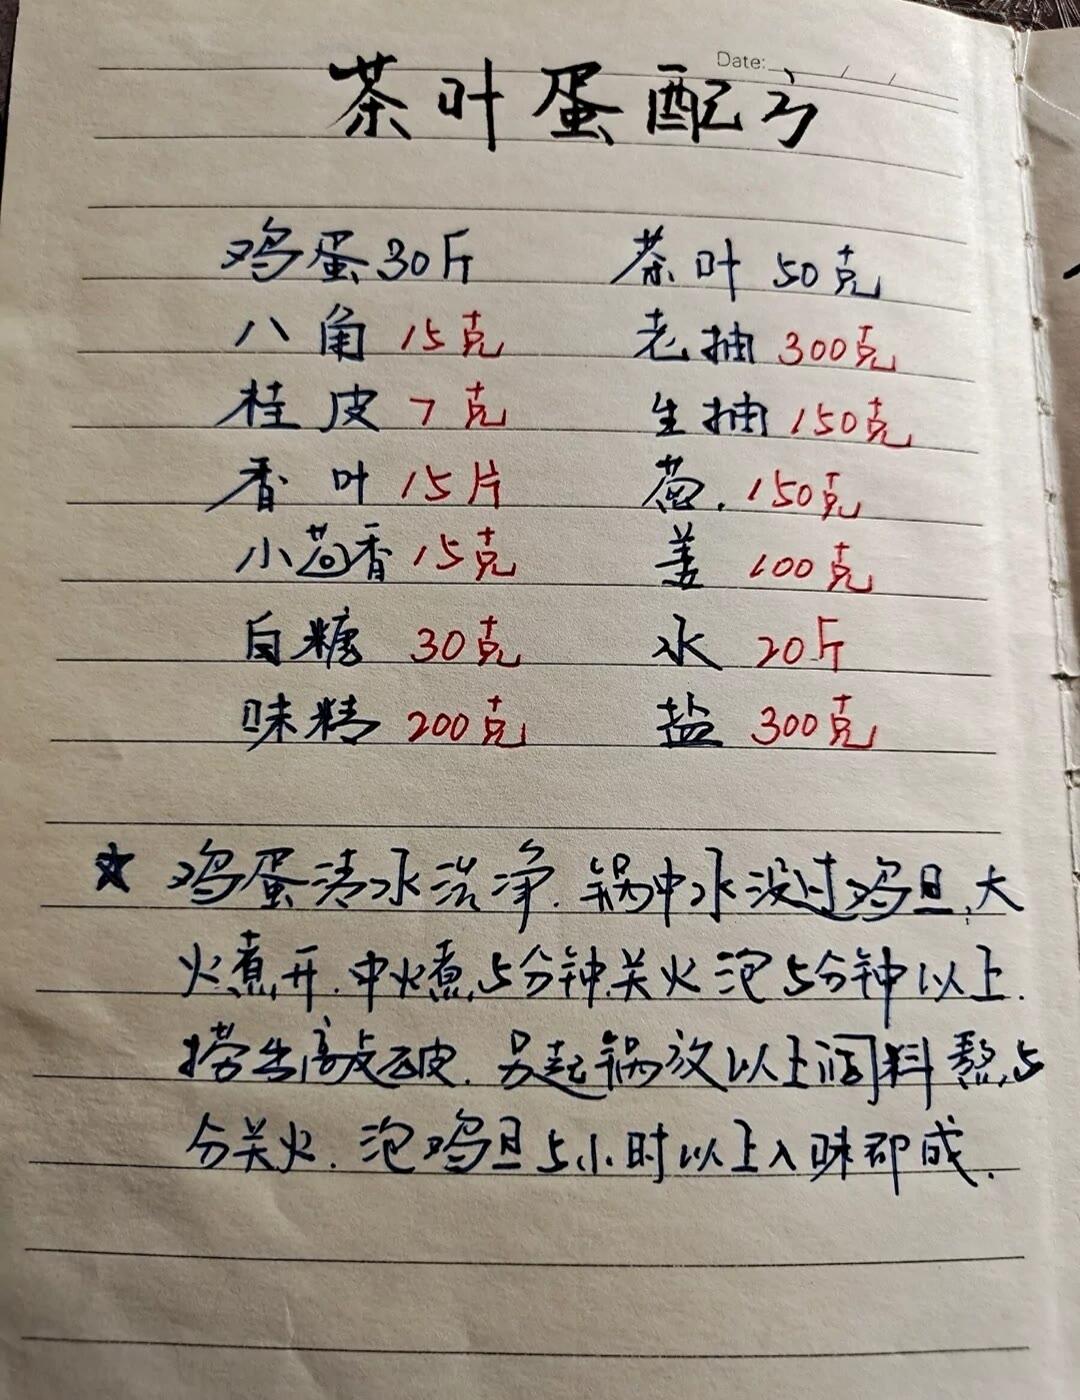 Date: / /
茶叶蛋配方
鸡蛋30斤 茶叶 50克
八角 15克 老抽 300克
桂皮 7克 生抽 150克
香叶 15片 葱. 150克
小茴香 15克 姜 100克
白糖 30克 水 20斤
味精 200克 盐 300克
★ 鸡蛋清水洗净.锅中水没过鸡旦,大
火煮开.中火煮5分钟关火泡5分钟以上.
捞出敲破皮.另起锅放以上调料熬5
分关火.泡鸡旦5小时以上入味即成.